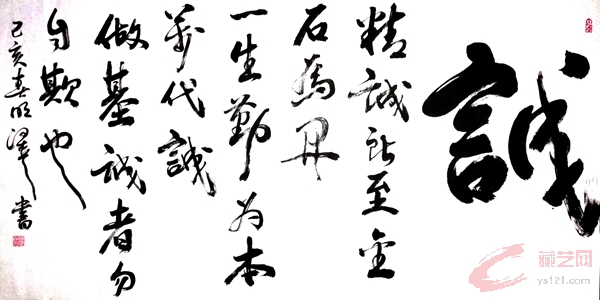 誠
精誠所至金
石為開
一生勤為本
萬代誠
做基誠者勿
自欺也
己亥書
藏艺网
ys121.com